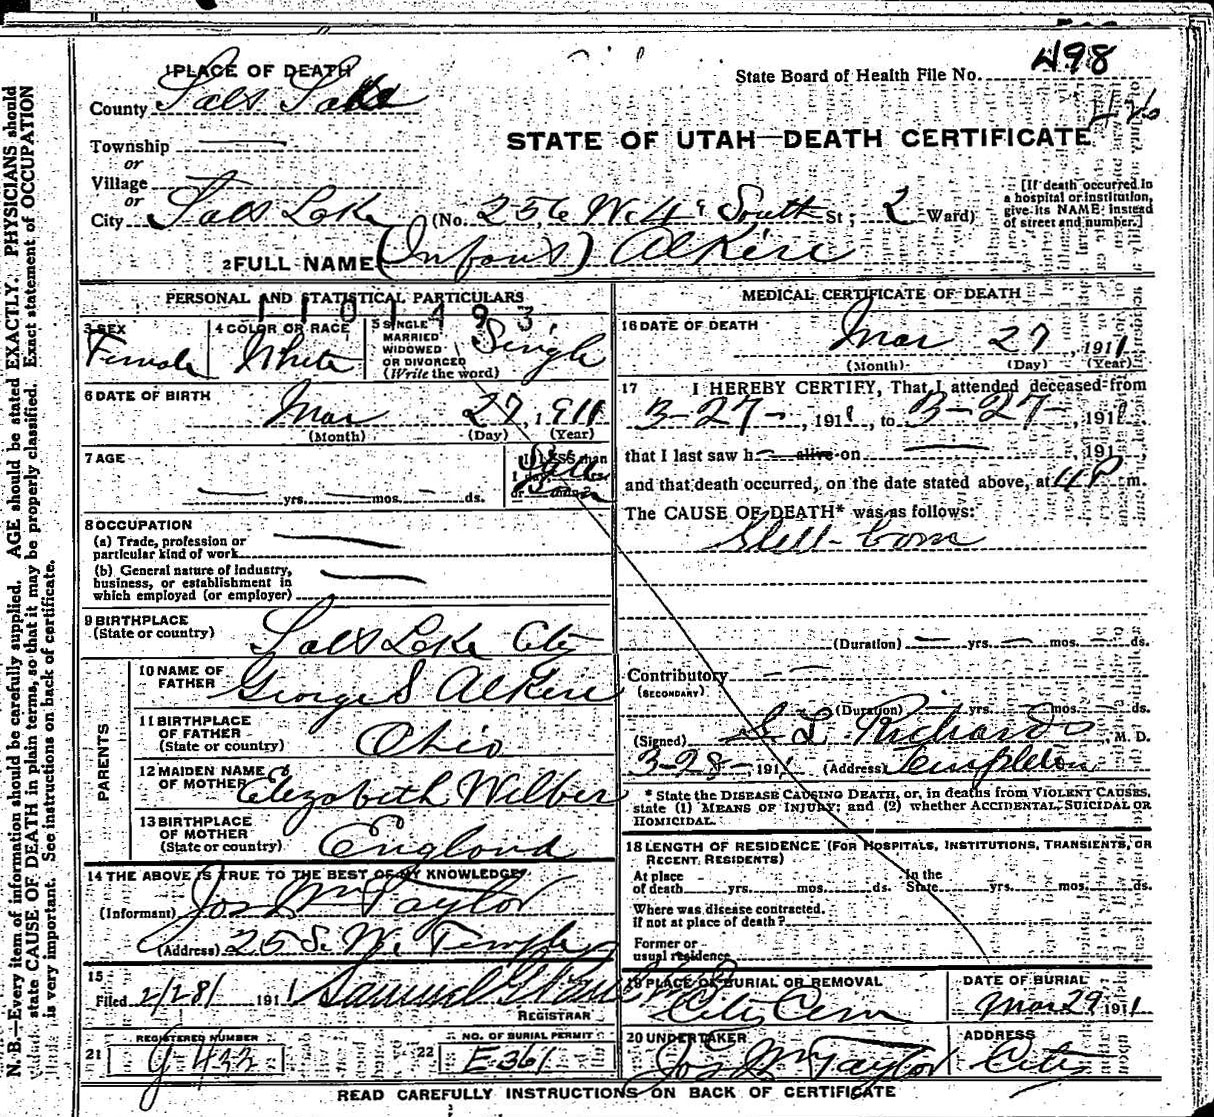 498
1 PLACE OF DEATH
State Board of Health File No.
County Salt Lake
426
STATE OF UTAH—DEATH CERTIFICATE
Township —
or
Village —
or
City Salt Lake (No. 256 W. 4th South St; 2 Ward)
[If death occurred in a hospital or institution, give its NAME instead of street and number.]
2 FULL NAME (Infant) Alkire
PERSONAL AND STATISTICAL PARTICULARS
1101493
3 SEX
Female
4 COLOR OR RACE
White
5 SINGLE
MARRIED
WIDOWED
OR DIVORCED
(Write the word)
Single
6 DATE OF BIRTH
Mar 27, 1911
(Month) (Day) (Year)
7 AGE
— yrs. — mos. — ds.
If LESS than
Still
Born
8 OCCUPATION
(a) Trade, profession or
particular kind of work —
(b) General nature of industry,
business, or establishment in
which employed (or employer) —
9 BIRTHPLACE
(State or country)
Salt Lake City
PARENTS
10 NAME OF
FATHER
George S Alkire
11 BIRTHPLACE
OF FATHER
(State or country)
Ohio
12 MAIDEN NAME
OF MOTHER
Elizabeth Wilber
13 BIRTHPLACE
OF MOTHER
(State or country)
England
14 THE ABOVE IS TRUE TO THE BEST OF MY KNOWLEDGE
(Informant) Jos Wm Taylor
(Address) 25 S. W. Temple
15
Filed 2/28/ 1911 Samuel G
REGISTRAR
21 REGISTERED NUMBER
22 NO. OF BURIAL PERMIT
E-361
MEDICAL CERTIFICATE OF DEATH
16 DATE OF DEATH
Mar 27, 1911
(Month) (Day) (Year)
17 I HEREBY CERTIFY, That I attended deceased from
3-27-, 1911, to 3-27-, 1911,
that I last saw h— alive on —, 191
and that death occurred, on the date stated above, at 4 P m.
The CAUSE OF DEATH* was as follows:
Still-born
(Duration) — yrs. — mos. — ds.
Contributory —
(SECONDARY)
(Duration) — yrs. — mos. — ds.
(Signed) S. L. Richards, M. D.
3-28-, 1911 (Address) Templeton
* State the DISEASE CAUSING DEATH, or, in deaths from VIOLENT CAUSES,
state (1) MEANS OF INJURY; and (2) whether ACCIDENTAL, SUICIDAL OR
HOMICIDAL.
18 LENGTH OF RESIDENCE (FOR HOSPITALS, INSTITUTIONS, TRANSIENTS, OR
RECENT RESIDENTS)
At place
of death yrs. mos. ds.
In the
State yrs. mos. ds.
Where was disease contracted.
if not at place of death?
Former or
usual residence
19 PLACE OF BURIAL OR REMOVAL
City Cem
DATE OF BURIAL
Mar 29 1911
20 UNDERTAKER
Jos Wm Taylor
ADDRESS
City
READ CAREFULLY INSTRUCTIONS ON BACK OF CERTIFICATE
N. B.—Every item of information should be carefully supplied. AGE should be stated EXACTLY. PHYSICIANS should
state CAUSE OF DEATH in plain terms, so that it may be properly classified. Exact statement of OCCUPATION
is very important. See instructions on back of certificate.